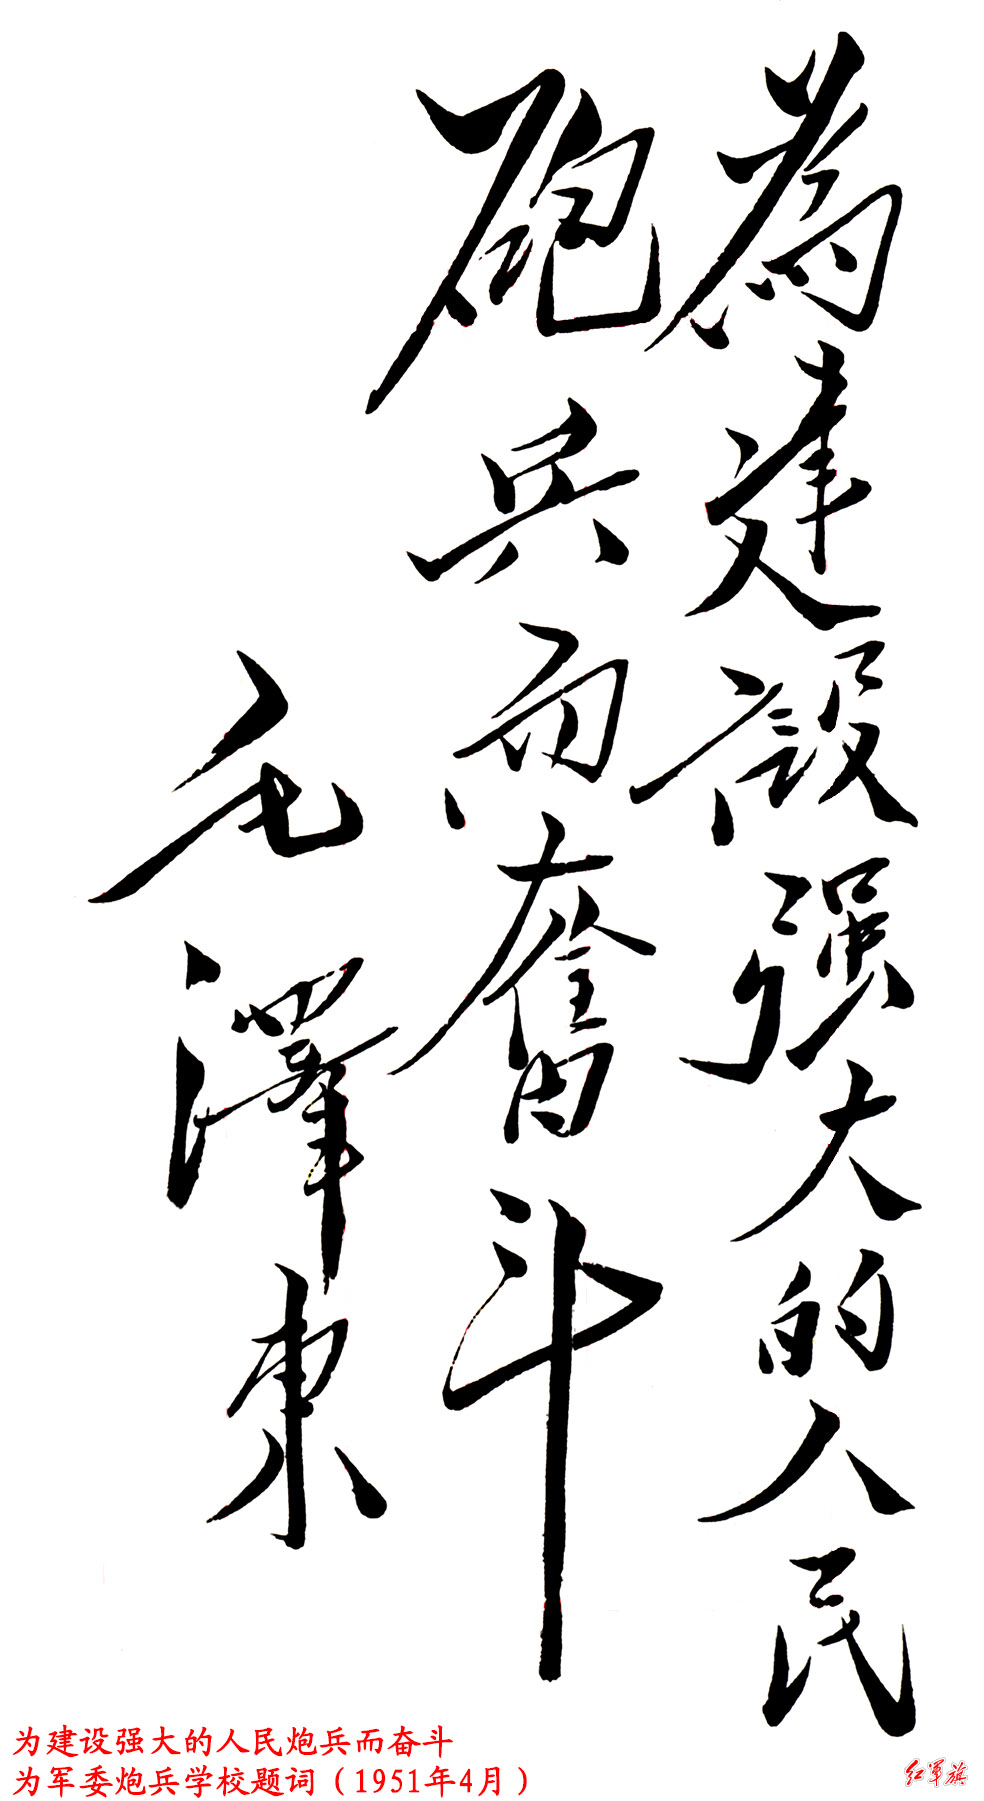 為建設强大的人民
砲兵而奮斗
毛澤東
为建设强大的人民炮兵而奋斗
为军委炮兵学校题词（1951年4月）
红军旗